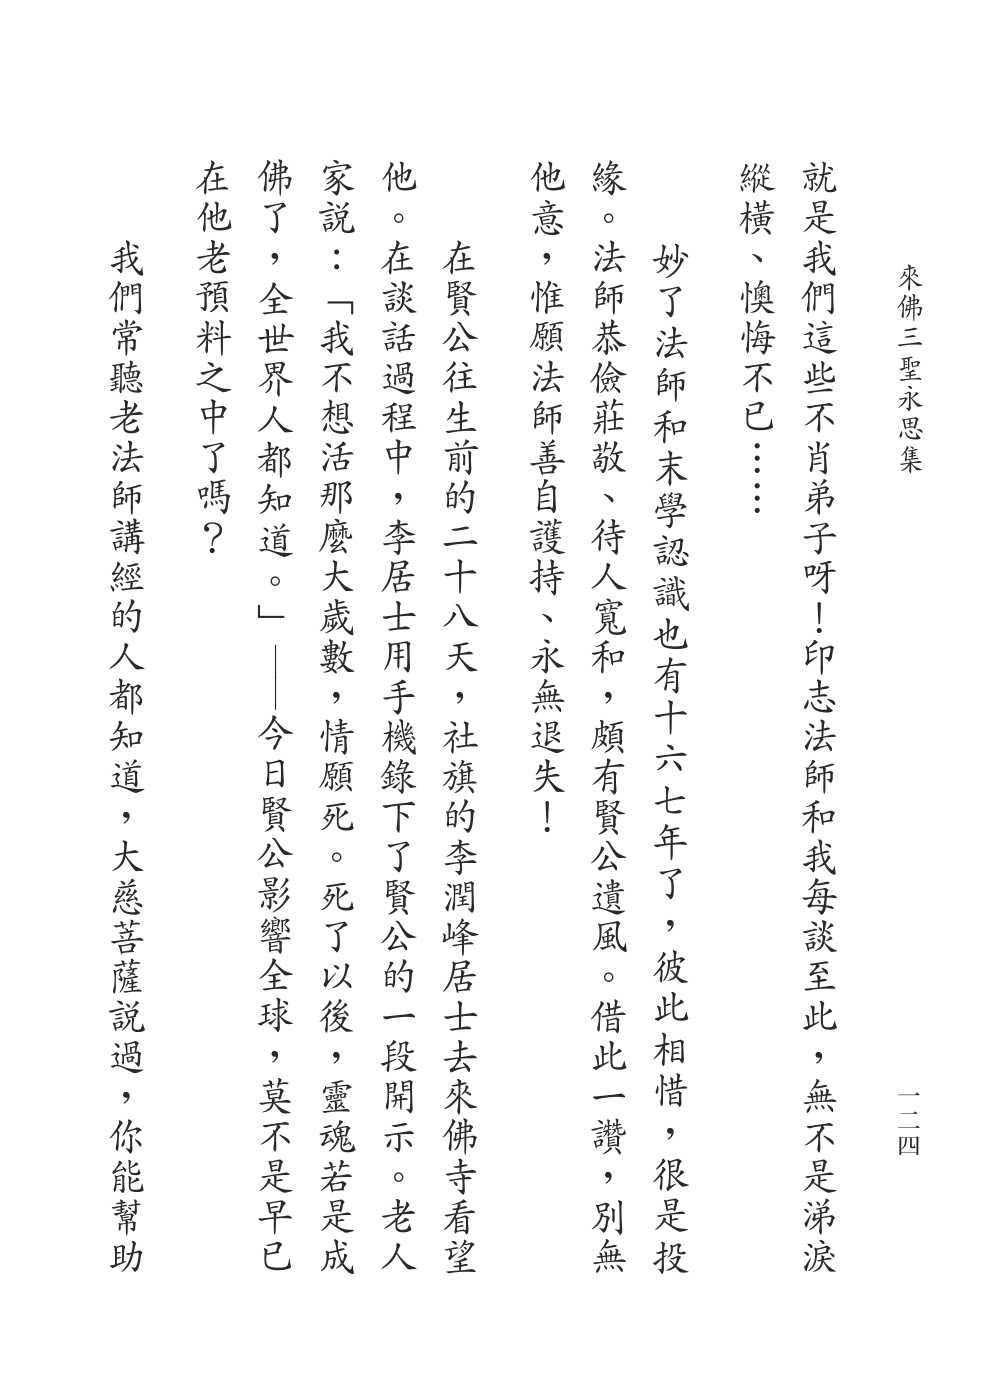 來佛三聖永思集
一二四
就是我們這些不肖弟子呀！印志法師和我每談至此，無不是涕淚
縱橫、懊悔不已……
妙了法師和末學認識也有十六七年了，彼此相惜，很是投
緣。法師恭儉莊敬、待人寬和，頗有賢公遺風。借此一讚，別無
他意，惟願法師善自護持、永無退失！
在賢公往生前的二十八天，社旗的李潤峰居士去來佛寺看望
他。在談話過程中，李居士用手機錄下了賢公的一段開示。老人
家說：「我不想活那麼大歲數，情願死。死了以後，靈魂若是成
佛了，全世界人都知道。」——今日賢公影響全球，莫不是早已
在他老預料之中了嗎？
我們常聽老法師講經的人都知道，大慈菩薩說過，你能幫助